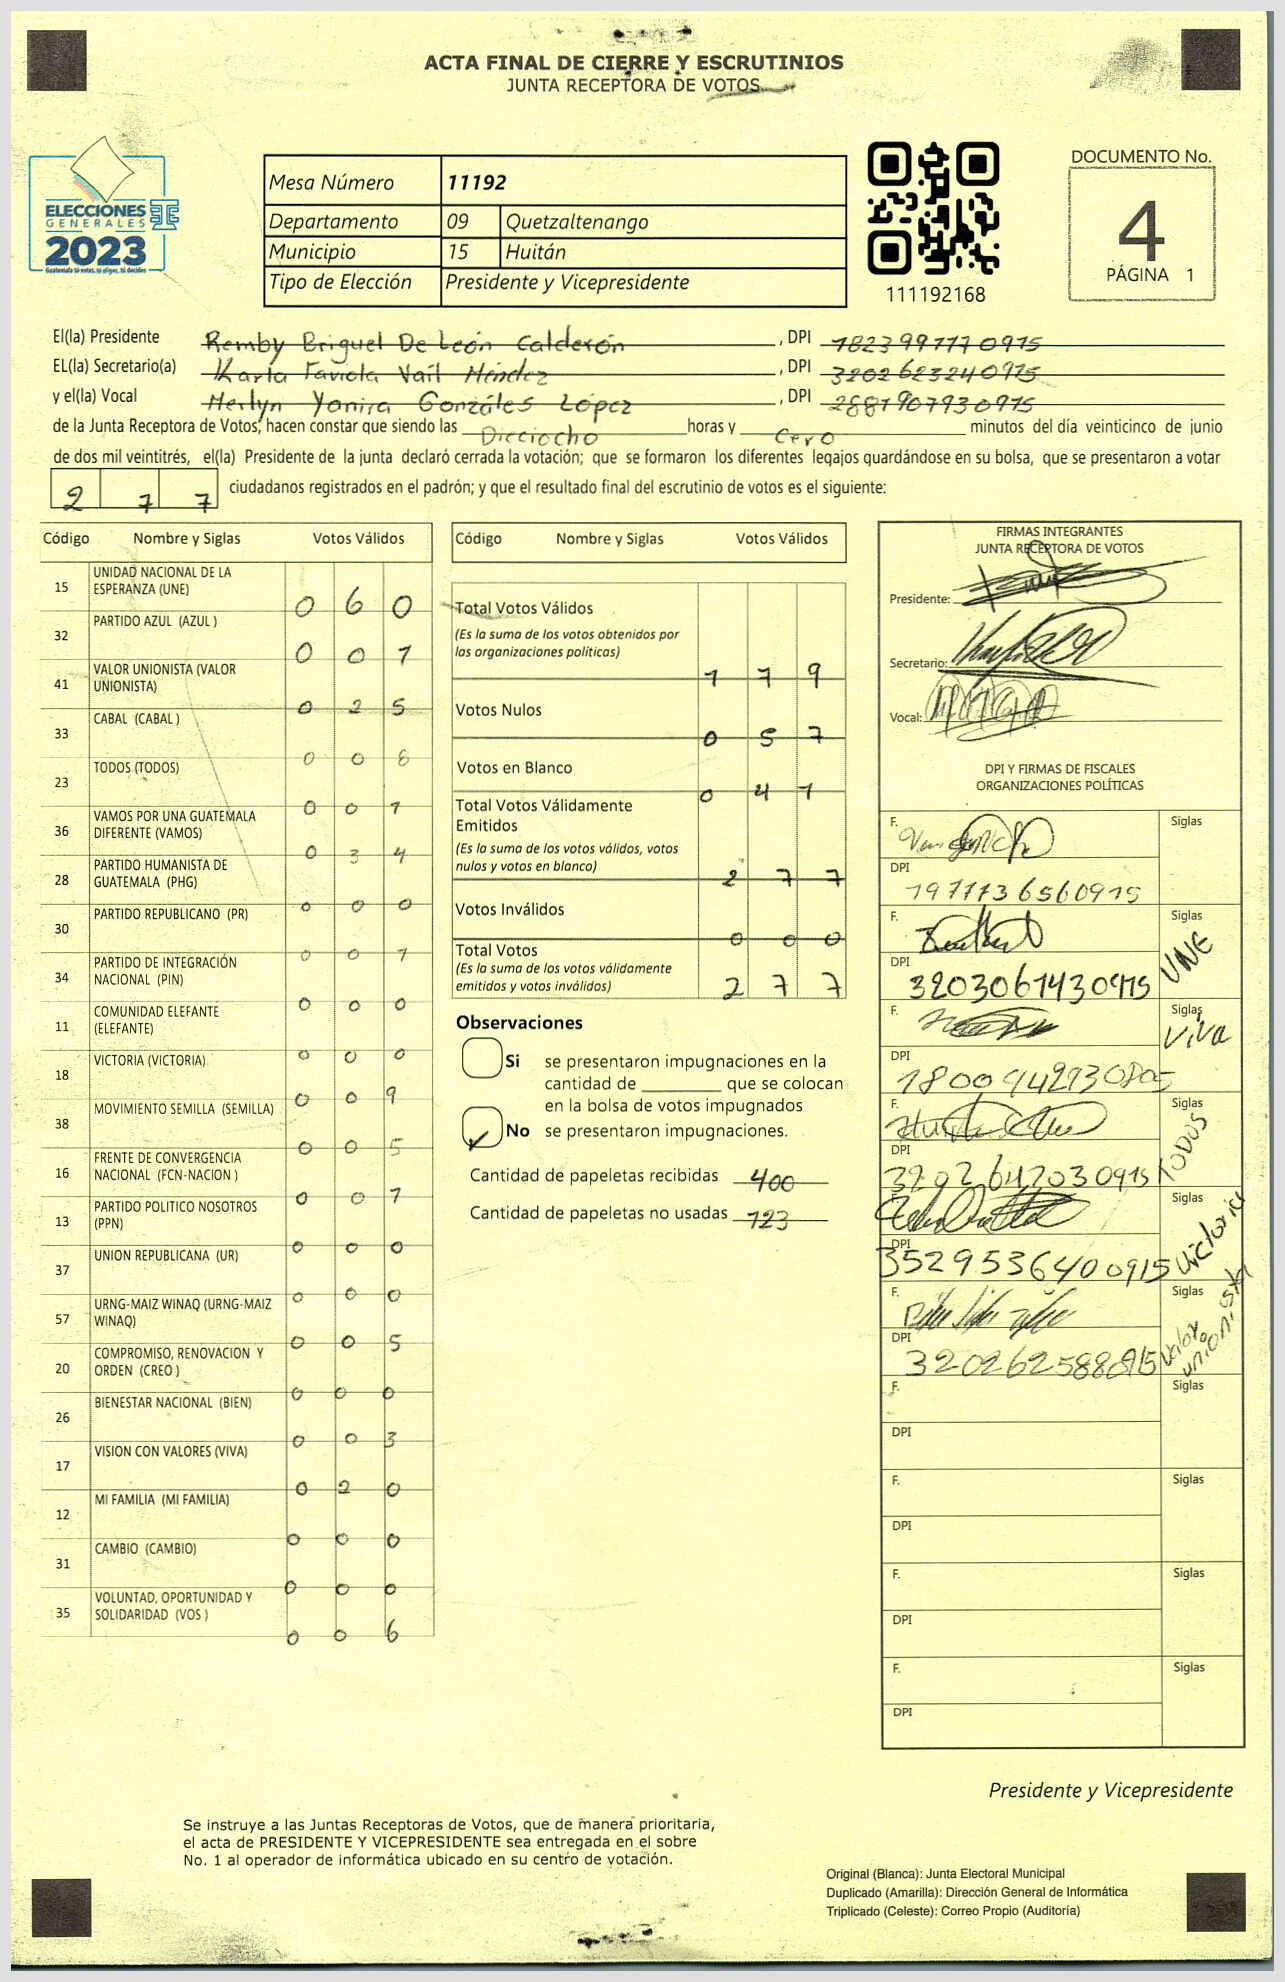 ACTA FINAL DE CIERRE Y ESCRUTINIOS
JUNTA RECEPTORA DE VOTOS
ELECCIONES
GENERALES
2023
Guatemala tú votas, tú eliges, tú decides
Mesa Número 11192
Departamento 09 Quetzaltenango
Municipio 15 Huitán
Tipo de Elección Presidente y Vicepresidente
111192168
DOCUMENTO No.
4
PÁGINA 1
El(la) Presidente Remby Briguel De León Calderón , DPI 1823997770915
EL(la) Secretario(a) Karla Faviola Vail Méndez , DPI 3202623240915
y el(la) Vocal Merlyn Yanira Gonzáles López , DPI 2881907930915
de la Junta Receptora de Votos, hacen constar que siendo las Dieciocho horas y Cero minutos del día veinticinco de junio
de dos mil veintitrés, el(la) Presidente de la junta declaró cerrada la votación; que se formaron los diferentes legajos guardándose en su bolsa, que se presentaron a votar
2 7 7 ciudadanos registrados en el padrón; y que el resultado final del escrutinio de votos es el siguiente:
Código Nombre y Siglas Votos Válidos
15 UNIDAD NACIONAL DE LA ESPERANZA (UNE) 0 6 0
32 PARTIDO AZUL (AZUL ) 0 0 1
41 VALOR UNIONISTA (VALOR UNIONISTA) 0 2 5
33 CABAL (CABAL ) 0 0 8
23 TODOS (TODOS) 0 0 1
36 VAMOS POR UNA GUATEMALA DIFERENTE (VAMOS) 0 3 4
28 PARTIDO HUMANISTA DE GUATEMALA (PHG) 0 0 0
30 PARTIDO REPUBLICANO (PR) 0 0 1
34 PARTIDO DE INTEGRACIÓN NACIONAL (PIN) 0 0 0
11 COMUNIDAD ELEFANTE (ELEFANTE) 0 0 0
18 VICTORIA (VICTORIA) 0 0 9
38 MOVIMIENTO SEMILLA (SEMILLA) 0 0 5
16 FRENTE DE CONVERGENCIA NACIONAL (FCN-NACION ) 0 0 1
13 PARTIDO POLITICO NOSOTROS (PPN) 0 0 0
37 UNION REPUBLICANA (UR) 0 0 0
57 URNG-MAIZ WINAQ (URNG-MAIZ WINAQ) 0 0 5
20 COMPROMISO, RENOVACION Y ORDEN (CREO ) 0 0 0
26 BIENESTAR NACIONAL (BIEN) 0 0 3
17 VISION CON VALORES (VIVA) 0 2 0
12 MI FAMILIA (MI FAMILIA) 0 0 0
31 CAMBIO (CAMBIO) 0 0 0
35 VOLUNTAD, OPORTUNIDAD Y SOLIDARIDAD (VOS ) 0 0 6
Código Nombre y Siglas Votos Válidos
Total Votos Válidos
(Es la suma de los votos obtenidos por
las organizaciones políticas) 1 7 9
Votos Nulos 0 5 7
Votos en Blanco 0 4 1
Total Votos Válidamente
Emitidos
(Es la suma de los votos válidos, votos
nulos y votos en blanco) 2 7 7
Votos Inválidos 0 0 0
Total Votos
(Es la suma de los votos válidamente
emitidos y votos inválidos) 2 7 7
Observaciones
Si se presentaron impugnaciones en la
cantidad de ________ que se colocan
en la bolsa de votos impugnados
No se presentaron impugnaciones.
Cantidad de papeletas recibidas 400
Cantidad de papeletas no usadas 123
FIRMAS INTEGRANTES
JUNTA RECEPTORA DE VOTOS
Presidente:
Secretario:
Vocal:
DPI Y FIRMAS DE FISCALES
ORGANIZACIONES POLÍTICAS
F. Siglas
DPI 1977736560915
F. Siglas UNE
DPI 3203061430915
F. Siglas Viva
DPI 1800942930805
F. Siglas TODOS
DPI 3202642030915
F. Siglas Victoria
DPI 3529536400915
F. Siglas Valor unionista
DPI 3202625880915
F. Siglas
DPI
F. Siglas
DPI
F. Siglas
DPI
F. Siglas
DPI
Presidente y Vicepresidente
Se instruye a las Juntas Receptoras de Votos, que de manera prioritaria,
el acta de PRESIDENTE Y VICEPRESIDENTE sea entregada en el sobre
No. 1 al operador de informática ubicado en su centro de votación.
Original (Blanca): Junta Electoral Municipal
Duplicado (Amarilla): Dirección General de Informática
Triplicado (Celeste): Correo Propio (Auditoría)